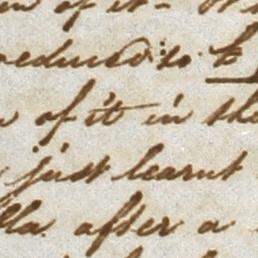 of it
reduced to
of it in the
just learnt
after a